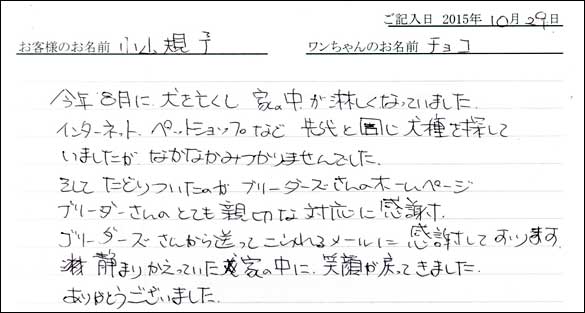 ご記入日 2015年10月29日
お客様のお名前 小山 規子 ワンちゃんのお名前 チョコ
今年8月に、犬を亡くし 家の中が淋しくなっていました。
インターネット、ペットショップなど 先代と同じ犬種を探して
いましたが なかなかみつかりませんでした。
そして たどりついたのが ブリーダーズさんのホームページ
ブリーダーさんのとても親切な対応に感謝。
ブリーダーズさんから送ってこられるメールに 感謝しております。
静まりかえっていた家の中に、笑顔が戻ってきました。
ありがとうございました。